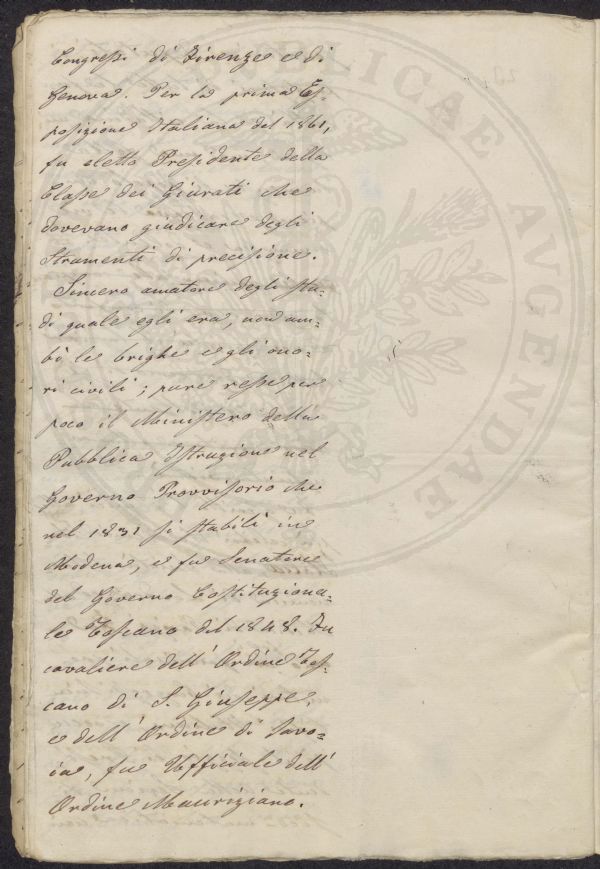 Congressi di Firenze e di
Genova. Per la prima Es-
posizione Italiana del 1861,
fu eletto Presidente della
Classe dei Giurati che
dovevano giudicare degli
Strumenti di precisione.
Sincero amatore degli stu-
di quale egli era, non am-
bì le brighe e gli ono-
ri civili; pure resse per
poco il Ministero della
Pubblica Istruzione nel
Governo Provvisorio che
nel 1831 si stabilì in
Modena, e fu Senatore
del Governo Costituziona-
le Toscano del 1848. Fu
cavaliere dell' Ordine Tos-
cano di S. Giuseppe,
e dell' Ordine di Savo-
ia, fu Ufficiale dell'
Ordine Mauriziano.
PUBLICAE
AVGENDAE